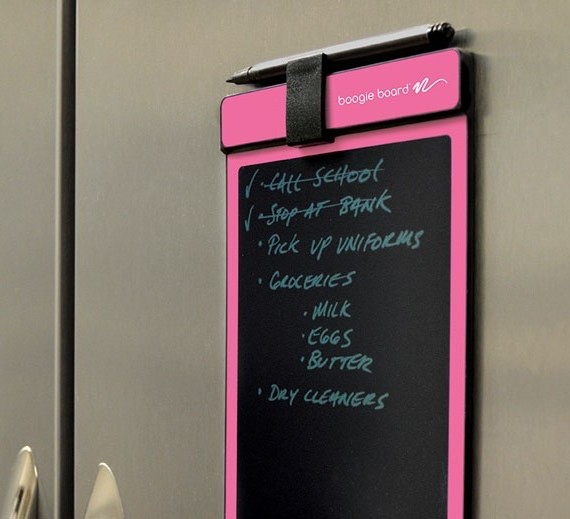 boogie board
✓ • CALL SCHOOL
✓ • STOP AT BANK
• PICK UP UNIFORMS
• GROCERIES
• MILK
• EGGS
• BUTTER
• DRY CLEANERS